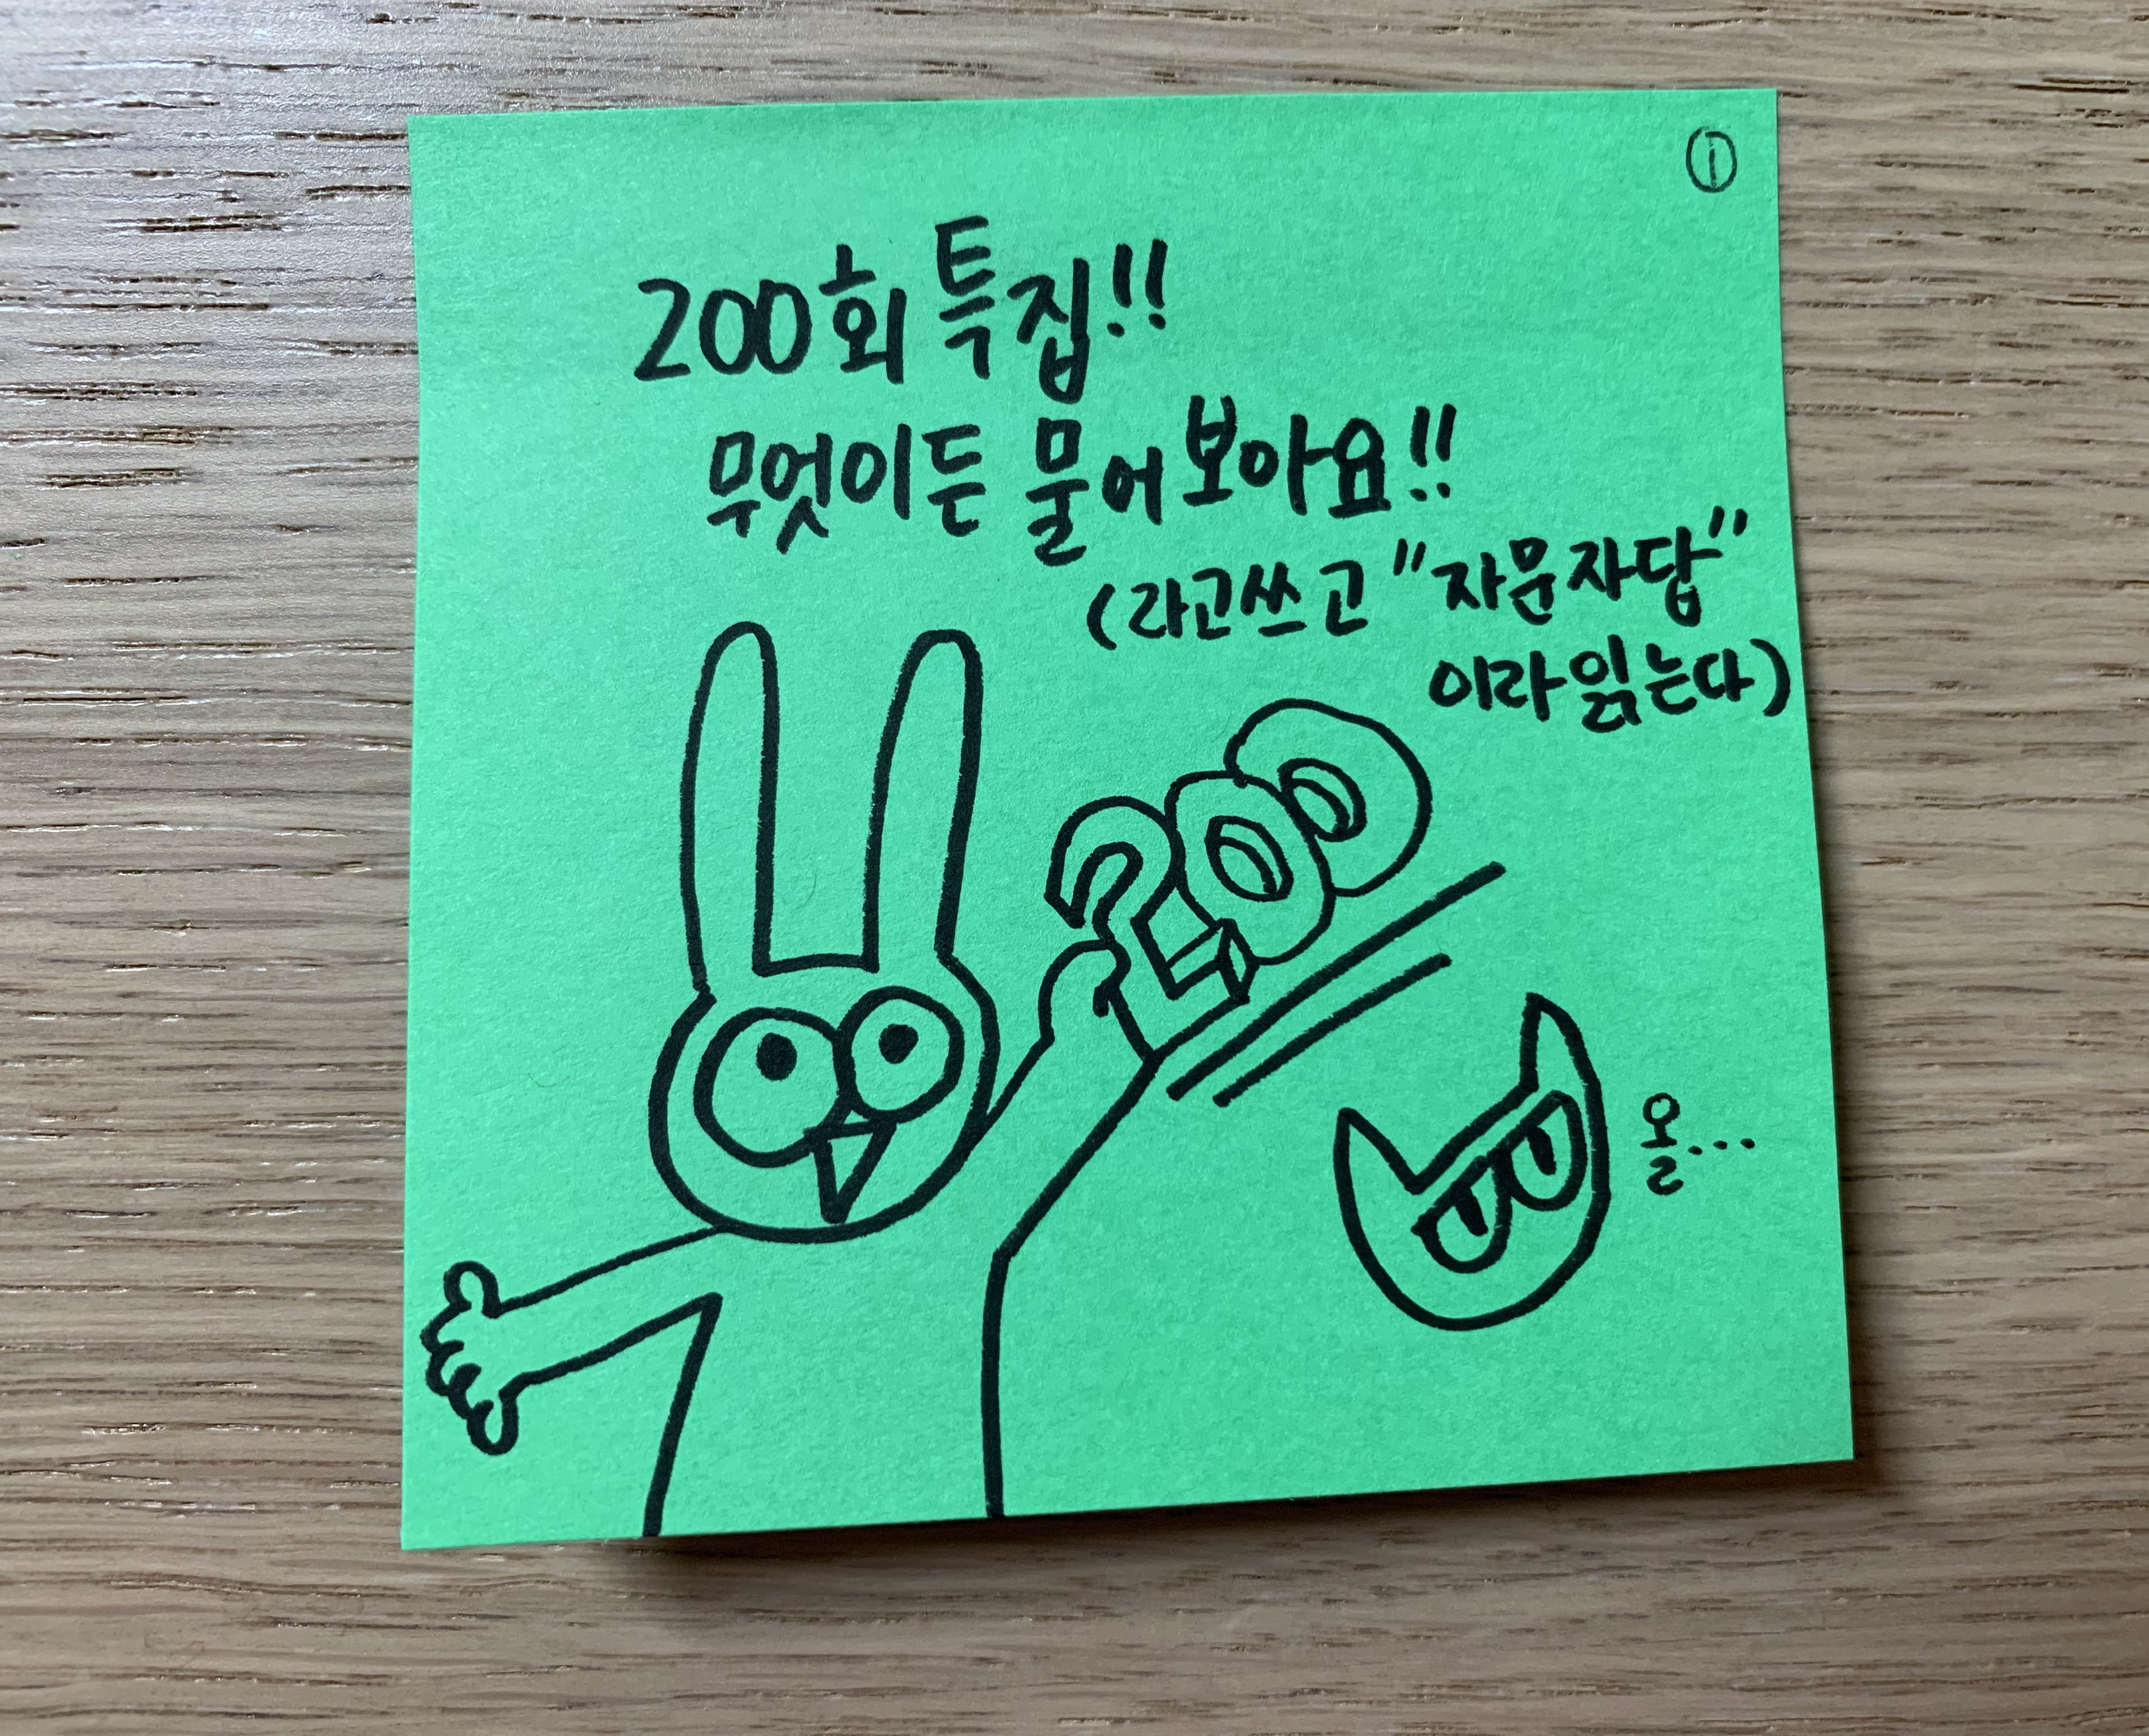 ①
200회 특집!!
무엇이든 물어보아요!!
(라고쓰고 "자문자답"
이라 읽는다)
200
올...